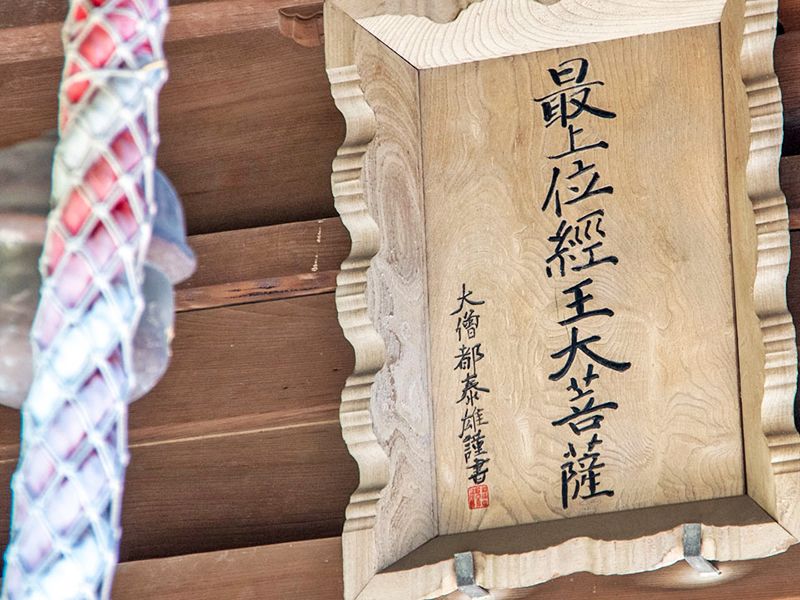 最上位經王大菩薩
大僧都泰雄謹書